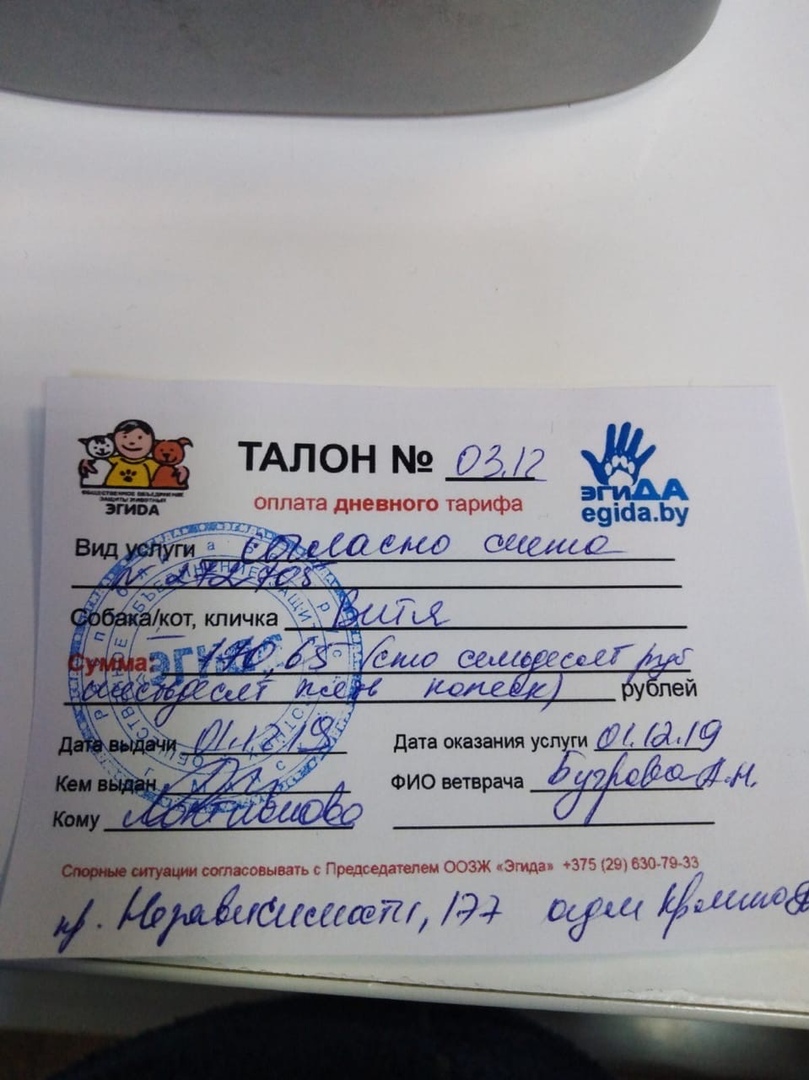 ОБЩЕСТВЕННОЕ ОБЪЕДИНЕНИЕ
ЗАЩИТЫ ЖИВОТНЫХ
ЭГИДА
ТАЛОН № 03.12
оплата дневного тарифа
эгиДА
egida.by
Вид услуги согласно счета
№ 272705
Собака/кот, кличка Витя
Сумма: 170,65 (сто семьдесят руб
шестьдесят пять копеек) рублей
ЭГИДА
Дата выдачи 01.12.19 Дата оказания услуги 01.12.19
Кем выдан ФИО ветврача Бугрова А.Н.
Кому
Спорные ситуации согласовывать с Председателем ООЗЖ «Эгида» +375 (29) 630-79-33
пр. Независимости, 177